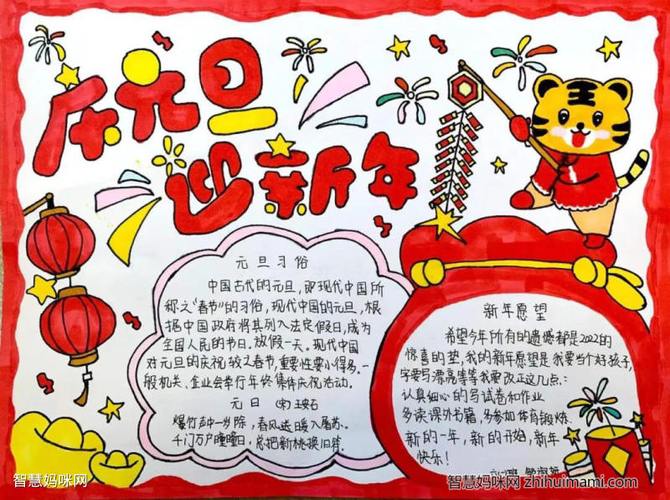 庆元旦
迎新年
元旦习俗
中国古代的元旦，即现代中国所
称之"春节"的习俗，现代中国的元旦，根
据中国政府将其列入法定假日，成为
全国人民的节日。放假一天。现代中国
对元旦的庆祝较之春节，重要性要小得多。一
般机关、企业会举行年终集体庆祝活动。
元日 (宋)王安石
爆竹声中一岁除，春风送暖入屠苏。
千门万户曈曈日，总把新桃换旧符。
新年愿望
希望今年所有的遗憾都是2022的
惊喜的垫，我的新年愿望是我要当个好孩子，
字要写漂亮等等我要改正这几点：
认真细心的写试卷和作业
多读课外书籍，多参加体育锻炼
新的一年，新的开始，新年
快乐！
智慧妈咪网
智慧妈咪网 zhihuimami.com